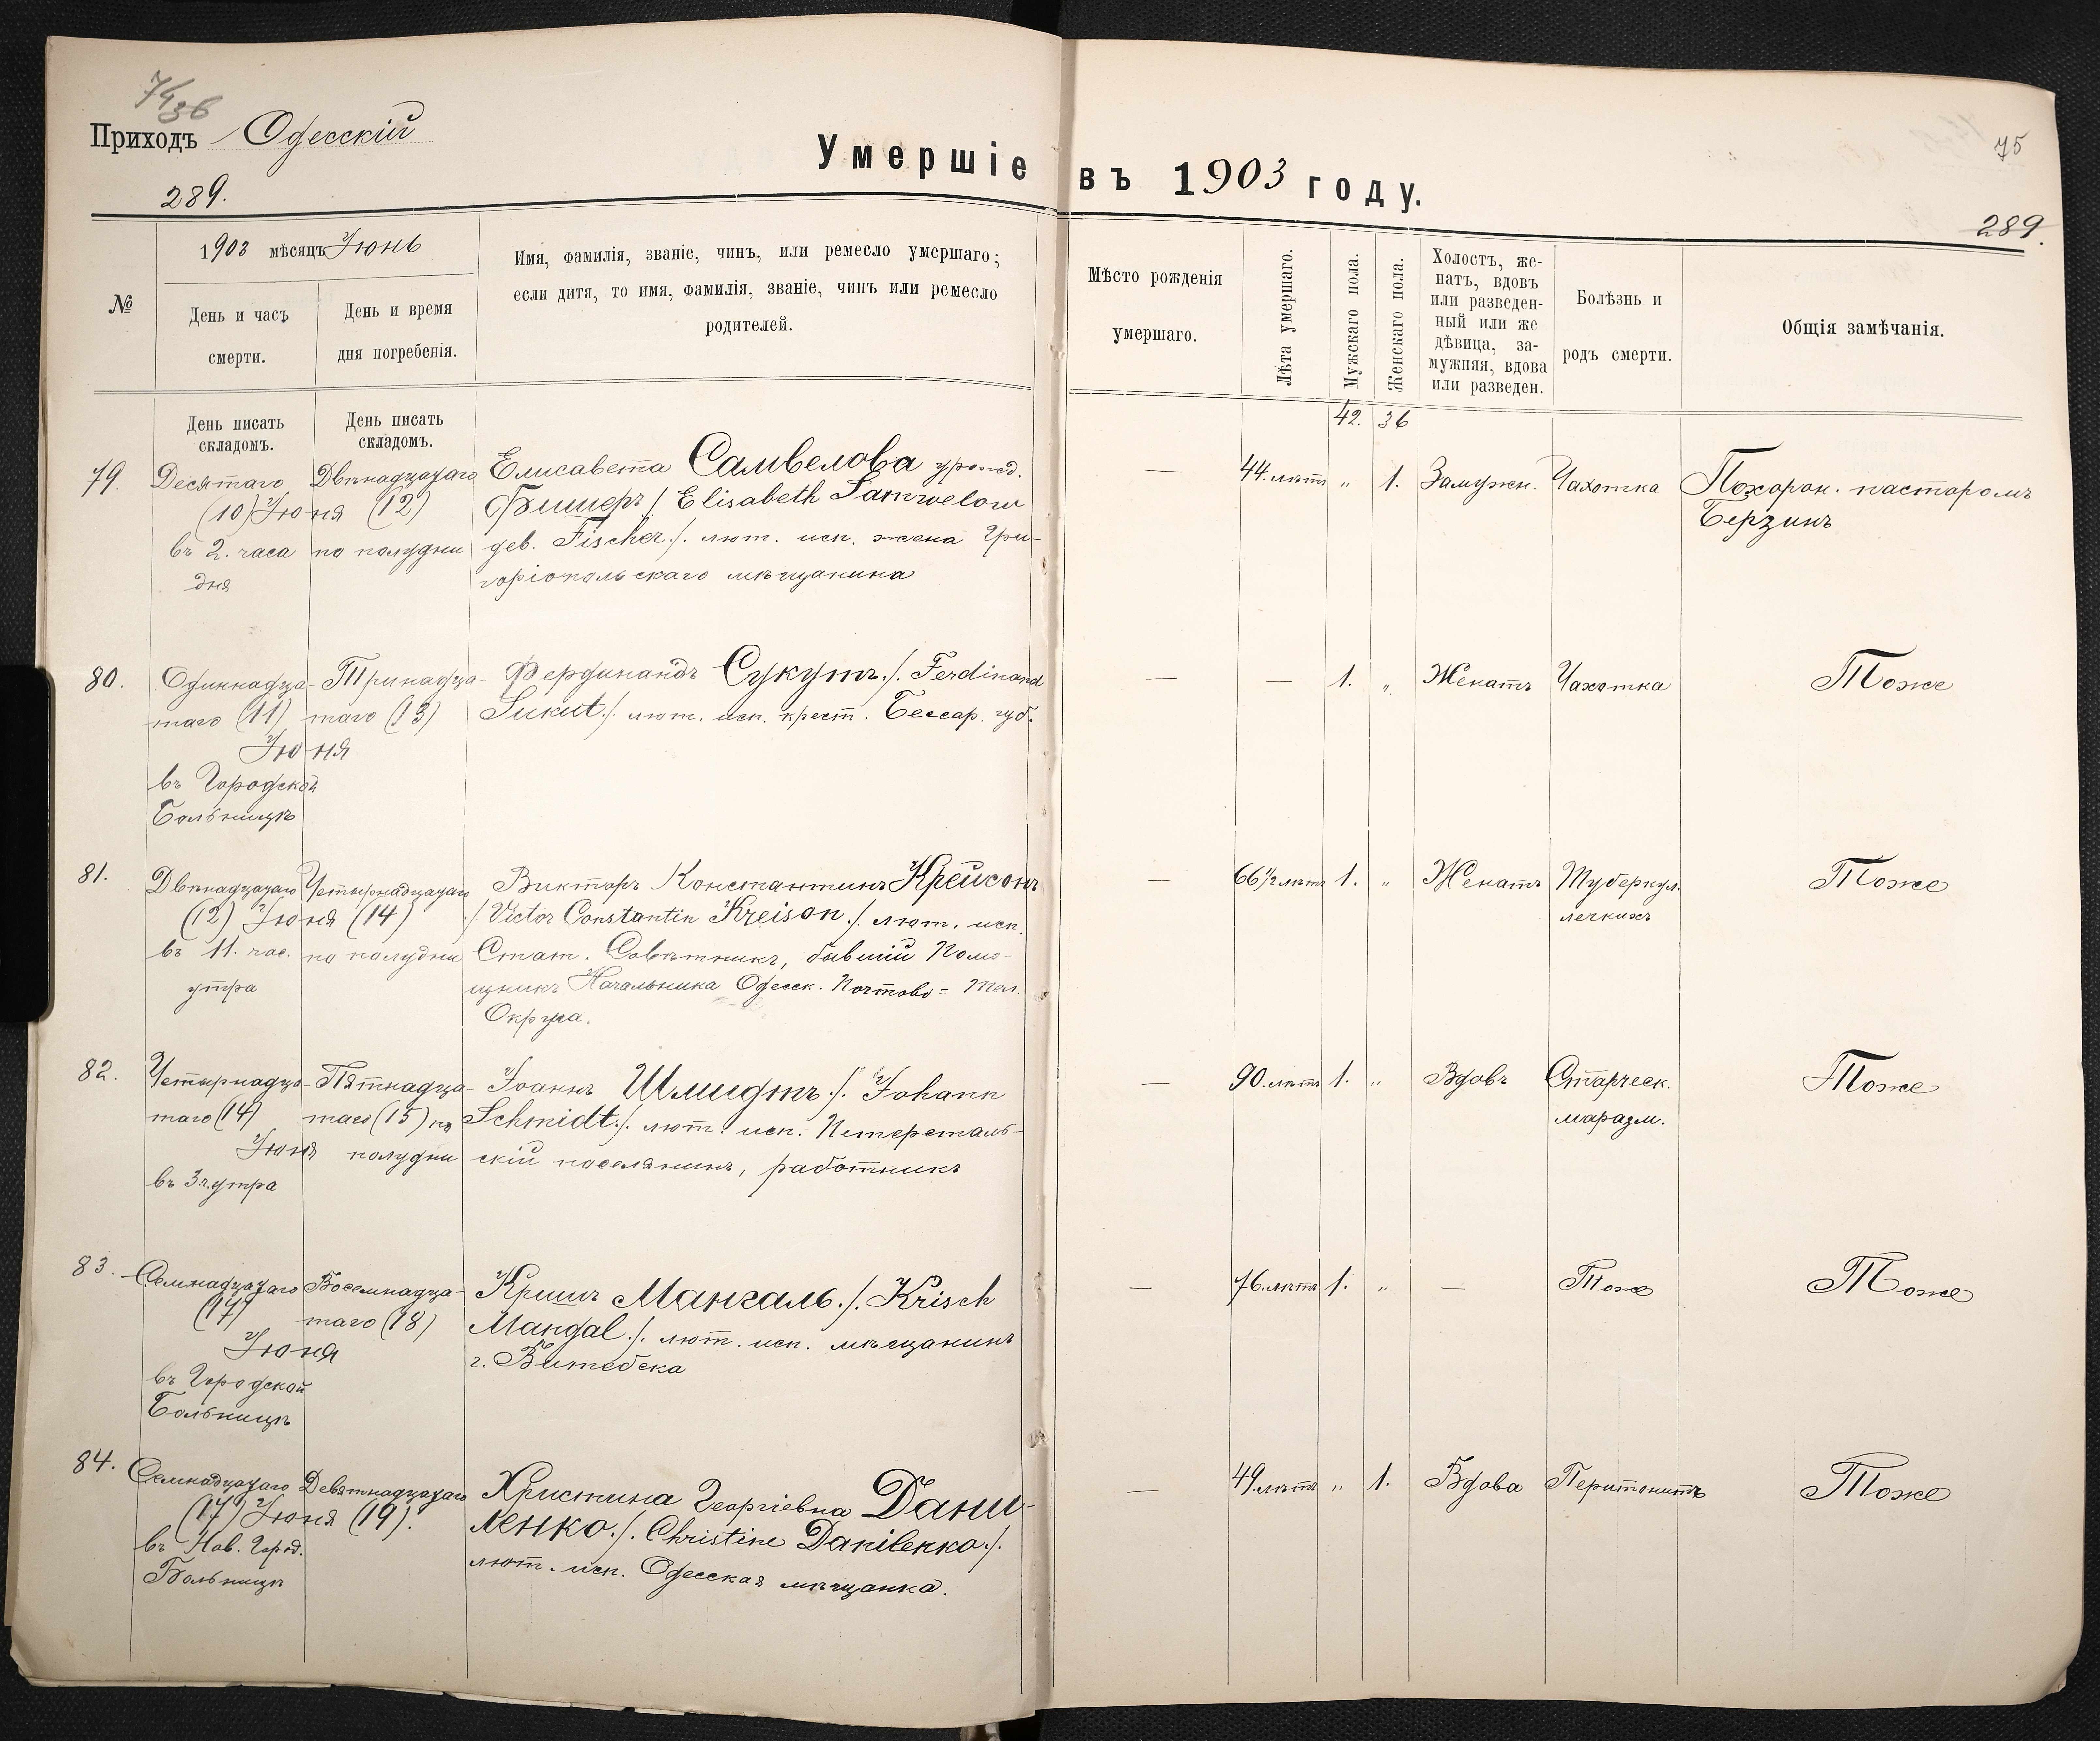 74 36
Приходъ Одесскій
Умершіе въ 1903 году.
75
289.
289.
№
1903 мѣсяцъ Іюнь
День и часъ смерти.
День и время дня погребенія.
Имя, фамилія, званіе, чинъ, или ремесло умершаго;
если дитя, то имя, фамилія, званіе, чинъ или ремесло
родителей.
Мѣсто рожденія
умершаго.
Лѣта умершаго.
Мужскаго пола.
Женскаго пола.
Холостъ, же-
натъ, вдовъ
или разведен-
ный или же
дѣвица, за-
мужняя, вдова
или разведен.
Болѣзнь и
родъ смерти.
Общія замѣчанія.
День писать
складомъ.
День писать
складомъ.
42. 36
79.
Десятаго
(10) Іюня
въ 2. часа
дня
Двѣнадцатаго
(12)
по полудни
Елисавета Самвелова урожд.
Фишеръ /. Elisabeth Samwelow
дев. Fischer ./. лют. исп. жена Гри-
горіопольскаго мѣщанина
— 44. лѣтъ „ 1. Замужн. Чахотка
Похорон. пасторомъ
Берзинъ
80.
Одиннадца-
таго (11)
Іюня
въ Городской
Больницѣ
Тринадца-
таго (13)
Фердинандъ Сукутъ ./. Ferdinand
Sukut ./. лют. исп. крест. Бессар. губ.
— — 1. „ Женатъ Чахотка Тоже
81.
Двѣнадцатаго
(12) Іюня
въ 11. час.
утра
Четырнадцатаго
(14)
по полудни
Викторъ Константинъ Крейсонъ
./. Victor Constantin Kreison ./. лют. исп.
Стат. Совѣтникъ, бывшій Помо-
щникъ Начальника Одесск. Почтово= Тел.
Округа.
— 66 1/2 лѣтъ 1. „ Женатъ Туберкул.
легкихъ
Тоже
82.
Четырнадца-
таго (14)
Іюня
въ 3 ч. утра
Пятнадца-
таго (15) по
полудни
Іоаннъ Шмидтъ ./. Johann
Schmidt ./. лют. исп. Петерсталь-
скій поселянинъ, работникъ
— 90. лѣтъ 1. „ Вдовъ Старческ.
маразм.
Тоже
83.
Семнадцатаго
(17)
Іюня
въ Городской
Больницѣ
Восемнадца-
таго (18)
Кришъ Мангаль ./. Krisch
Mangal ./. лют. исп. мѣщанинъ
г. Витебска
— 76. лѣтъ 1. „ — Тоже Тоже
84.
Семнадцатаго
(17) Іюня
въ Нов. Город.
Больницѣ
Девятнадцатаго
(19).
Христина Георгіевна Дани-
ленко ./. Christine Danilenko ./.
лют. исп. Одесская мѣщанка.
— 49 лѣтъ „ 1. Вдова Перитонитъ Тоже